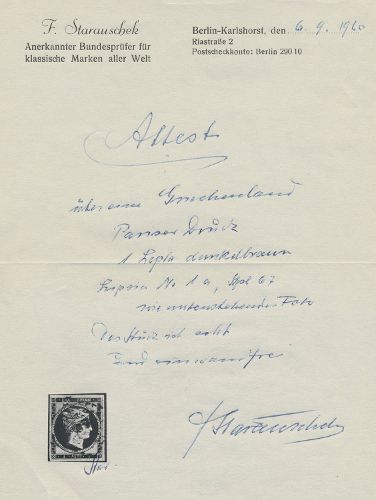 F. Starauschek
Anerkannter Bundesprüfer für
klassische Marken aller Welt
Berlin-Karlshorst, den 6. 9. 1960
Riastraße 2
Postscheckkonto: Berlin 290 10
Attest
über eine Griechenland
Pariser Druck
1 Lepta dunkelbraun
No 1a, 67
wie untenstehendes Foto
Das Stück ist echt
und einwandfrei
Starauschek
Star.